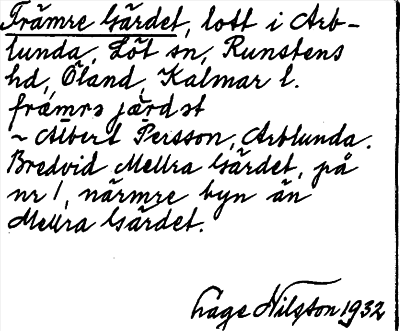 Främre Gärdet, lott i Arb-
lunda, Löt sn, Runstens
hd, Öland, Kalmar l.
främrə jærdət
~ Albert Persson, Arblunda.
Bredvid Mellra Gärdet, på
nr 1, närmre byn än
Mellra Gärdet.
Låge Nilsson 1932